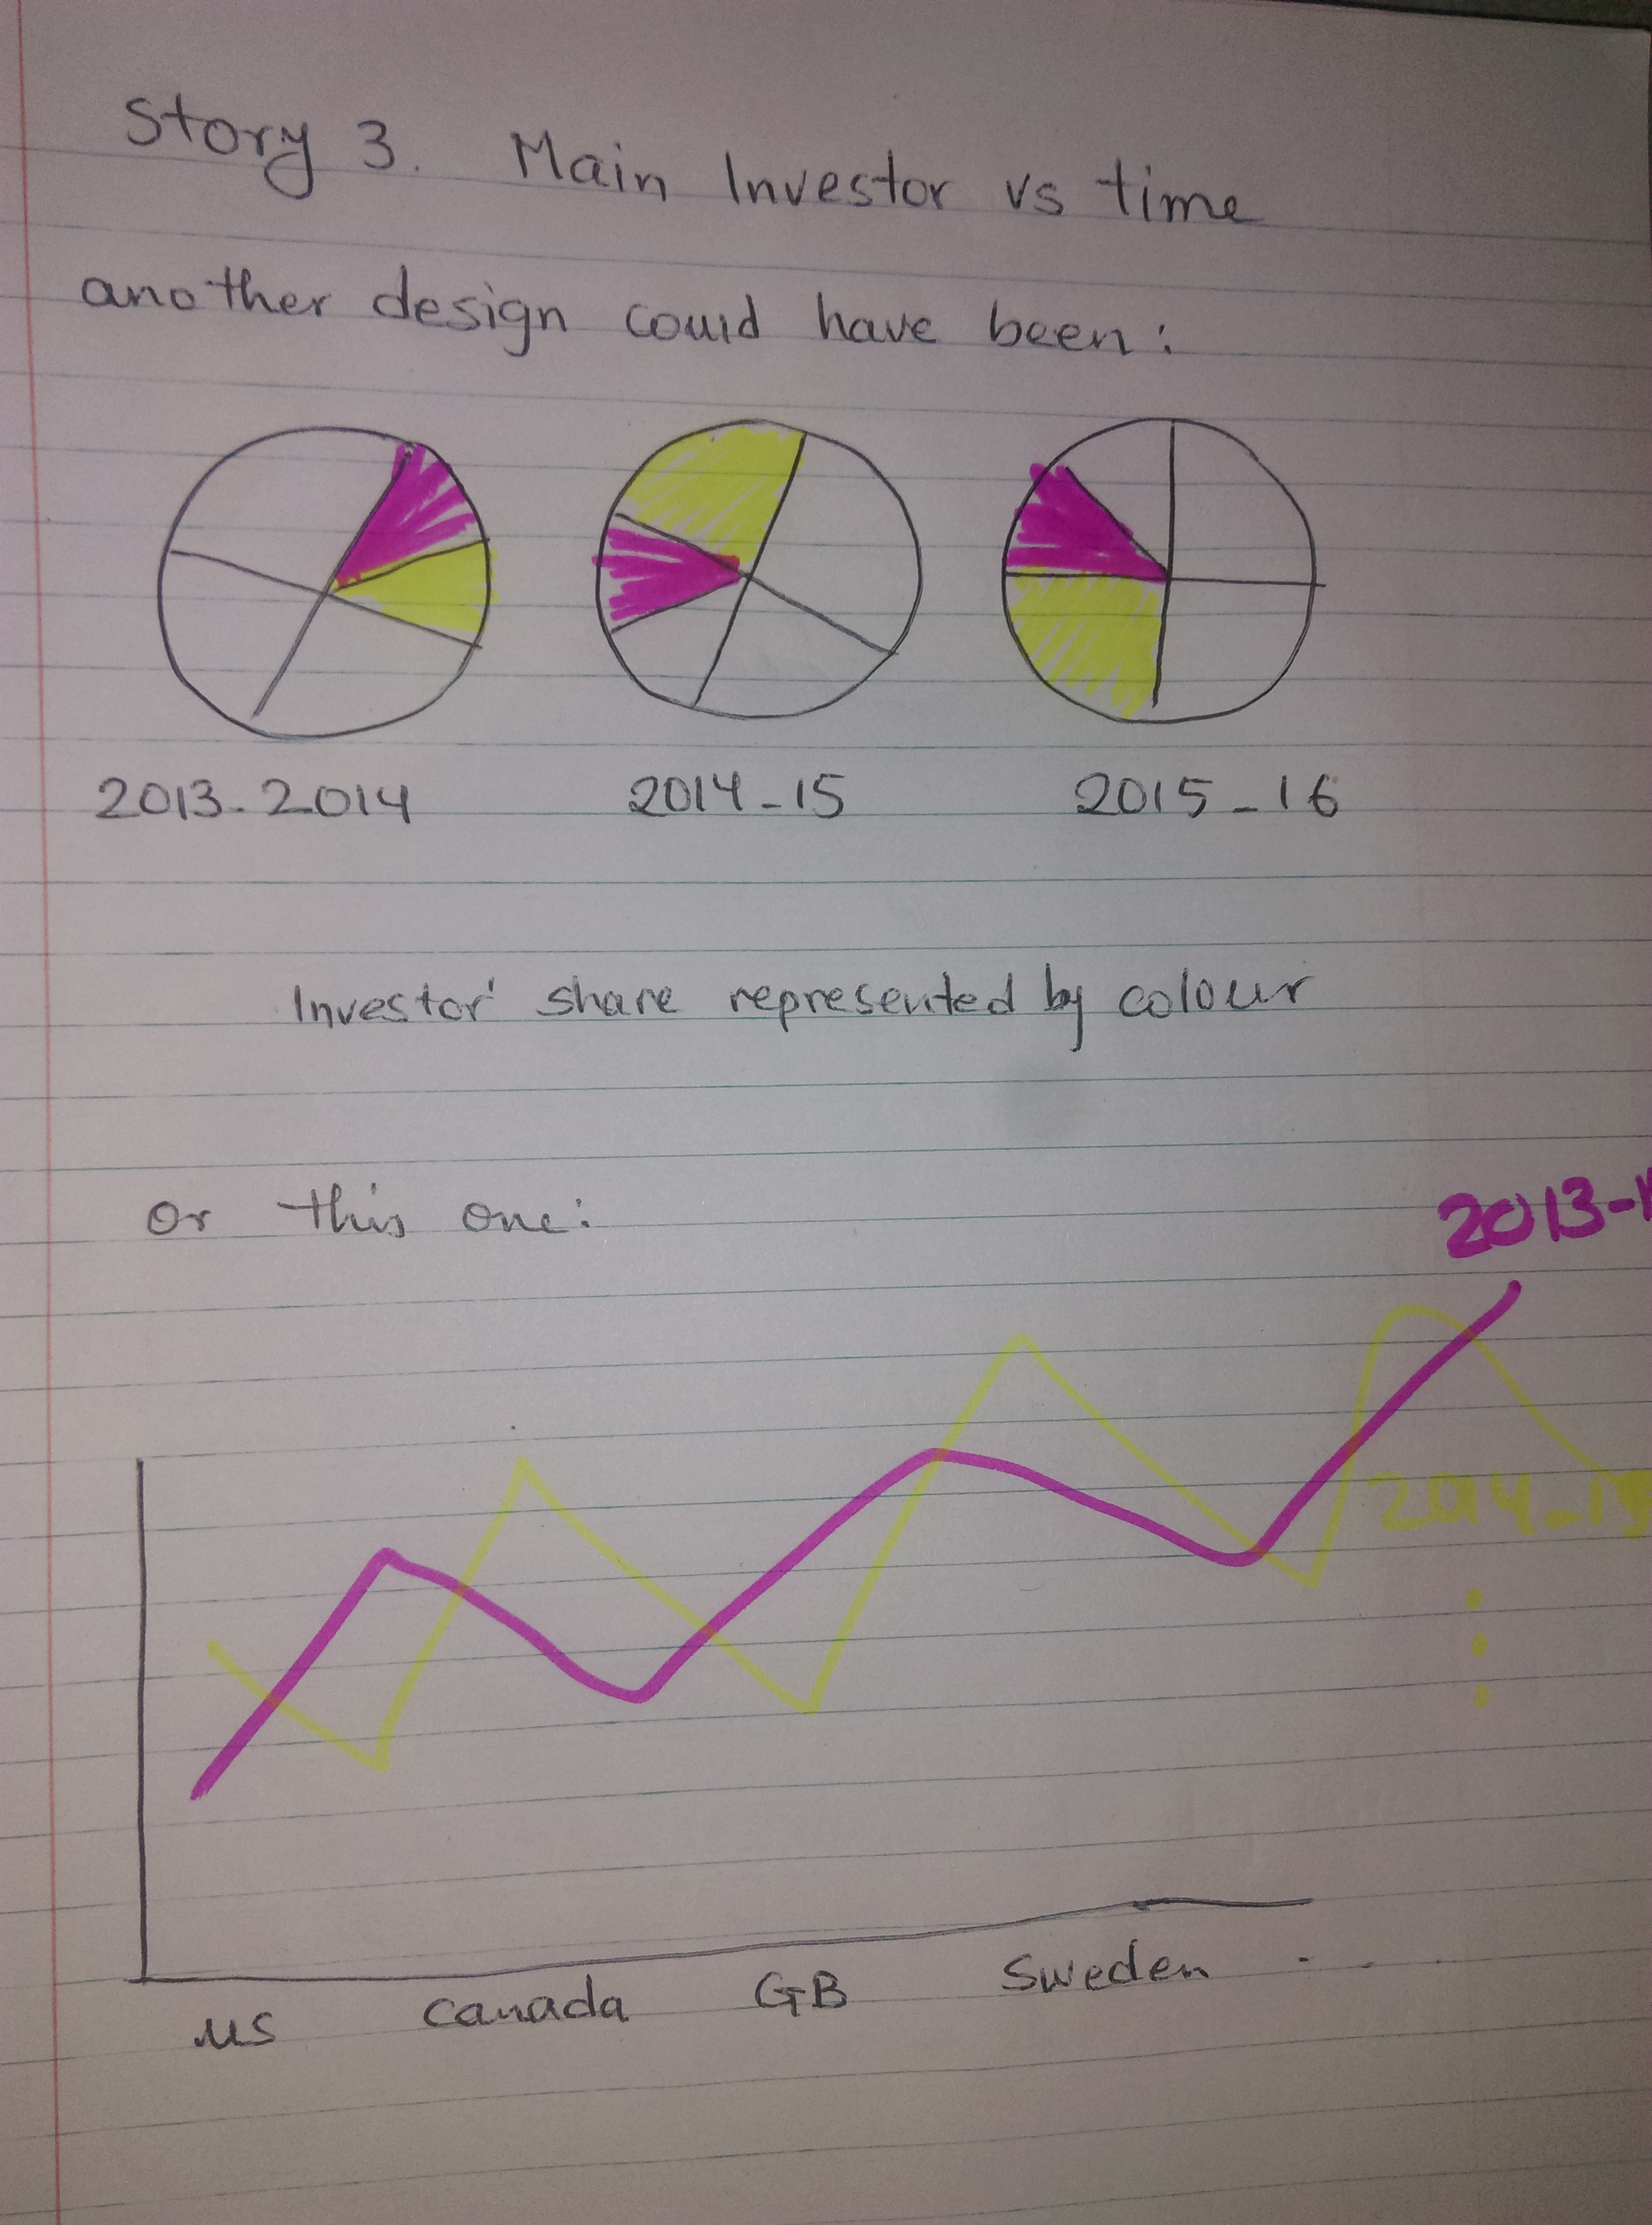 Story 3. Main Investor vs time
another design could have been:
2013-2014 2014-15 2015-16
Investor' share represented by colour
or this one:
2013-1
2014-15
US Canada GB Sweden - - - .